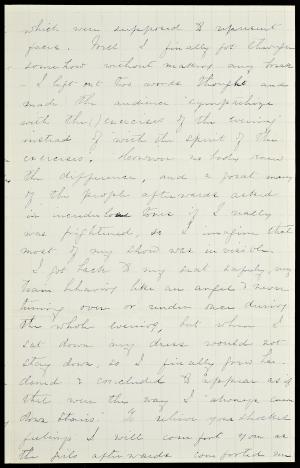 which were supposed to represent
faces. Well I finally got through
somehow without making any break
- I left out two words though, and
made the audience sympathize
with the (!) exercises of the evening
instead of with the spirit of the
exercises. However no body knew
the difference, and a great many
of the people afterwards asked
in incredulous tones if I really
was frightened, so I imagine that
most of my show was invisible.
I got back to my seat safely, my
train behaving like an angel & never
turning over or under once during
the whole evening, but when I
sat down my dress would not
stay down, so I finally grew
and concluded to appear as if
that were the way I always came
down stairs. To relieve your shocked
feelings I will comfort you as
the girls afterwards comforted me